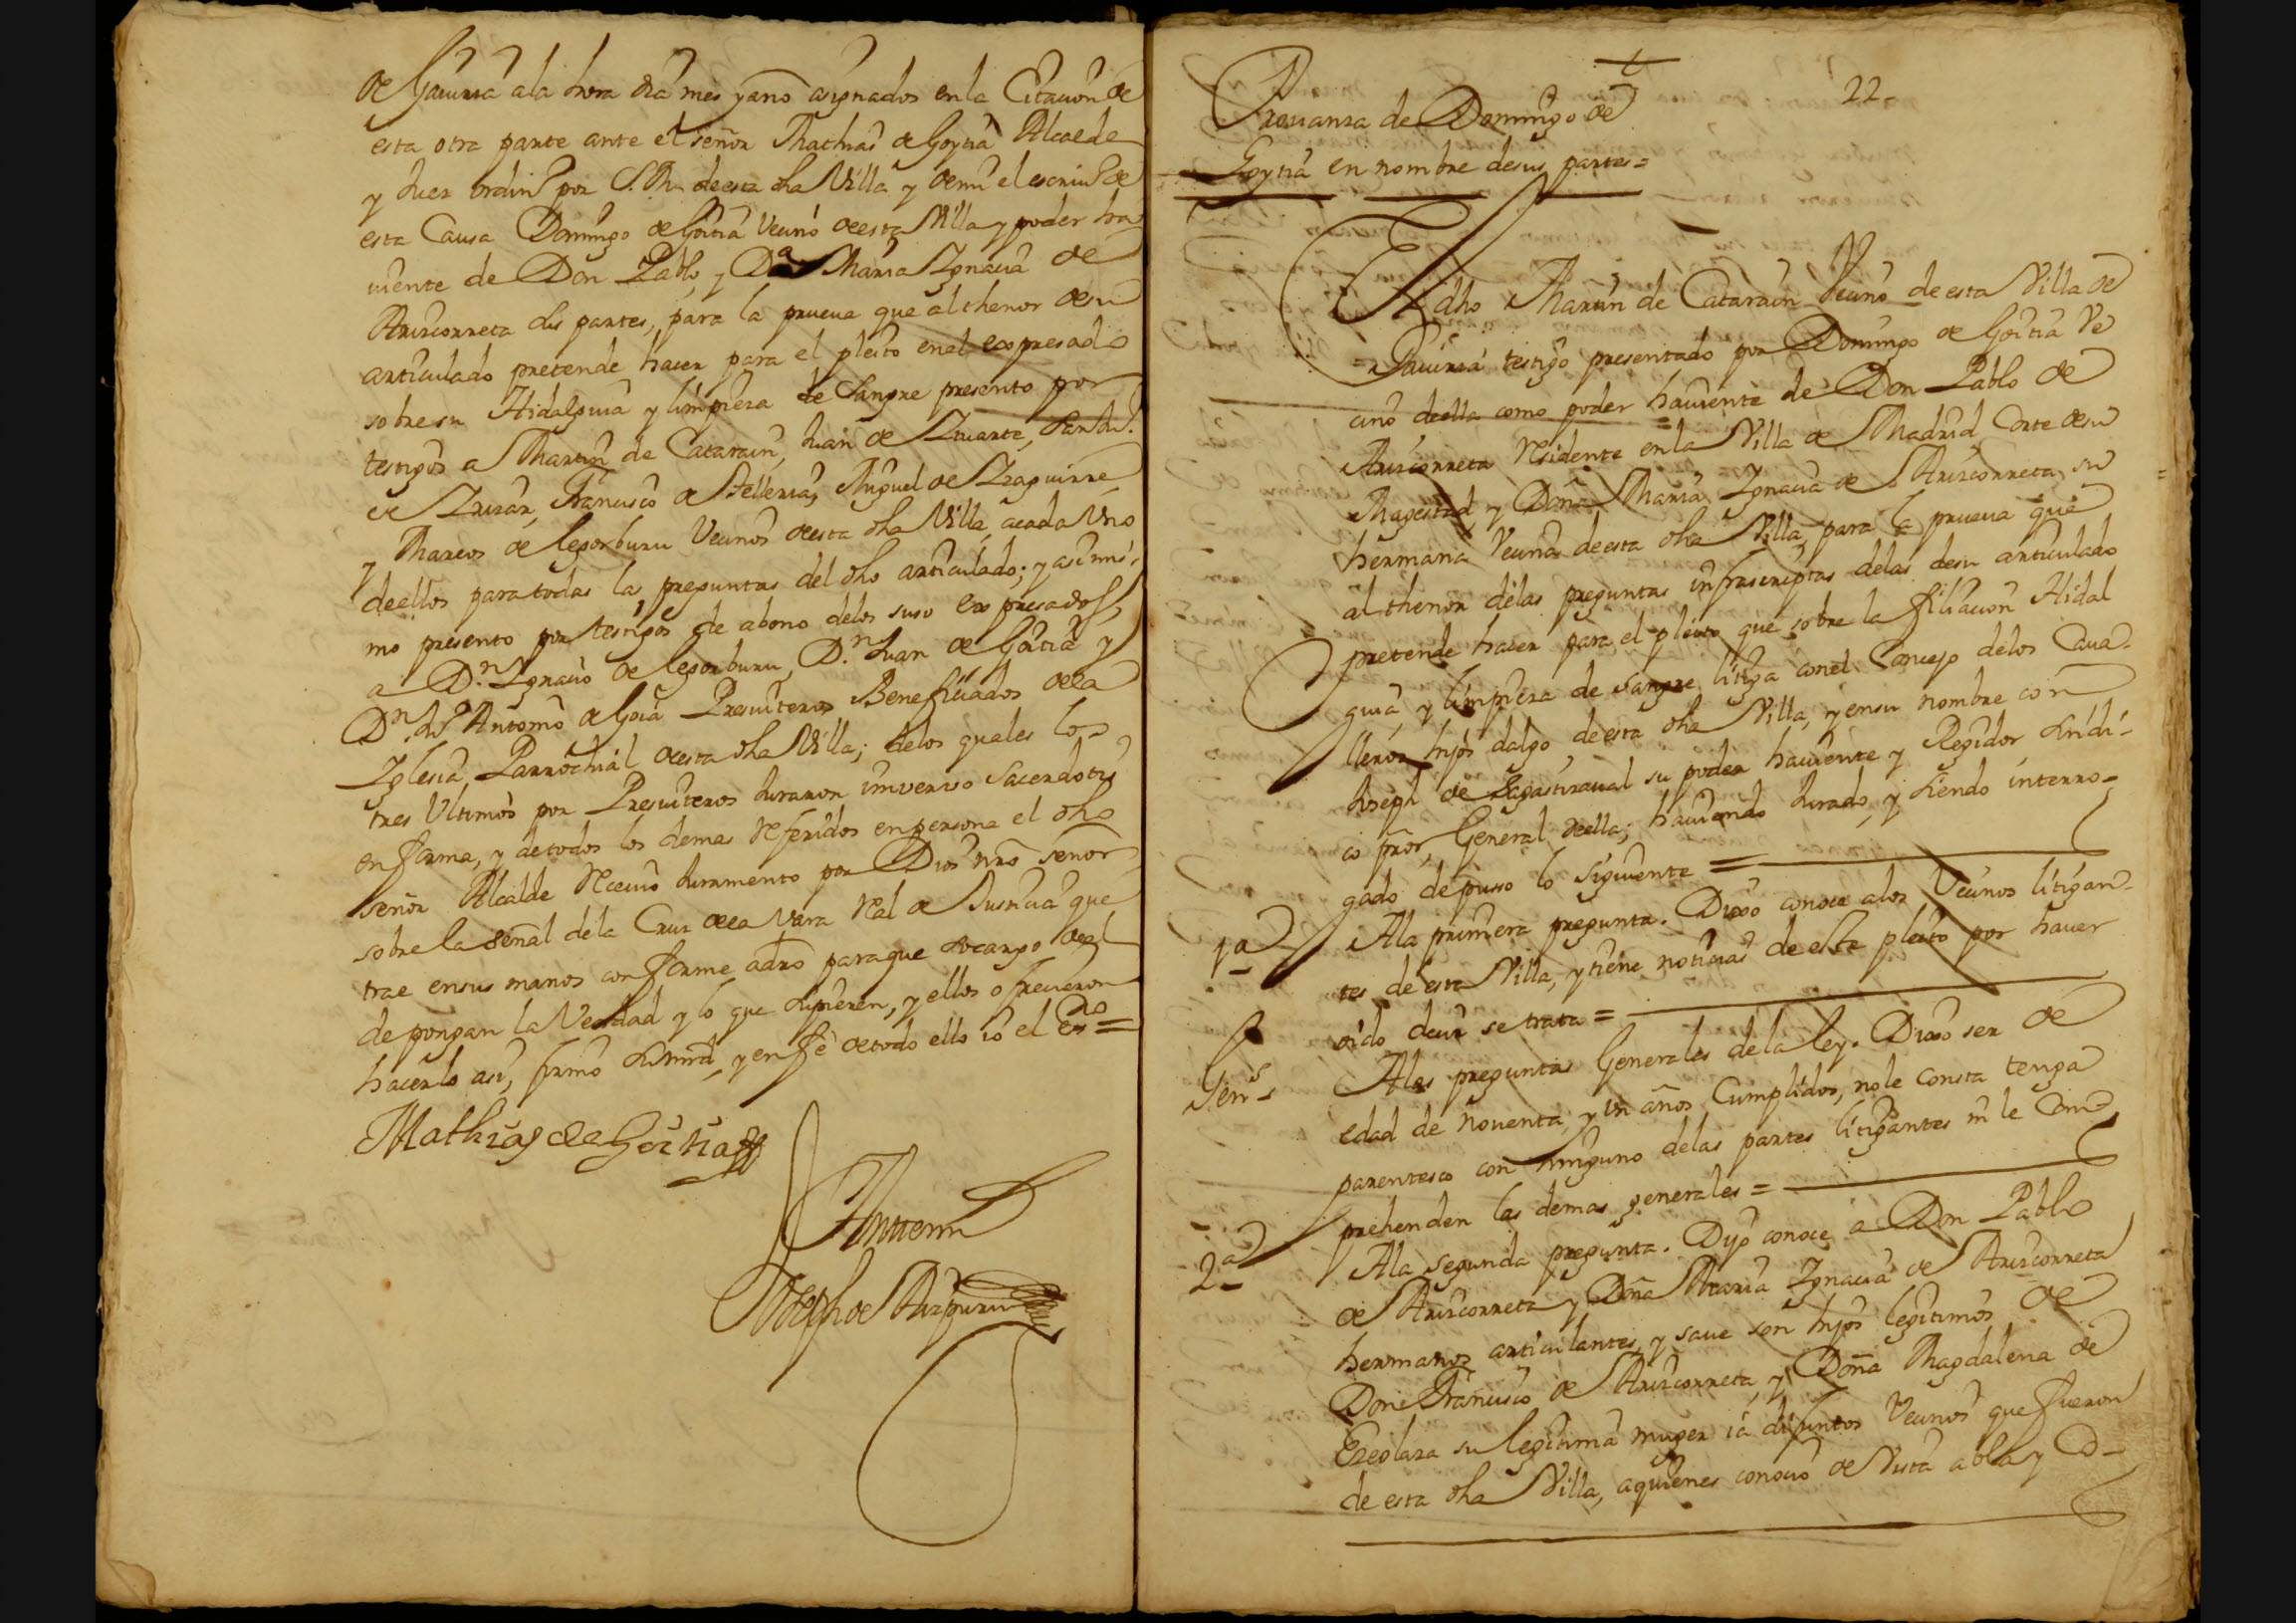 de Gauirra ala hora dia mes y año asignados en la Citacion de
esta otra parte ante el señor Mathias de Goytia Alcalde
y Juez ordinº por S. M. de esta dha Villa y de mi el escriuº de
esta Causa Domingo de Goitia Vecino de esta Villa y poder ha
uiente de Don Pablo, y Dª Maria Ygnacia de
Arizcorreta sus partes, para la prueua que al thenor de su
articulado pretende hacer para el pleito en el expresado
sobre su Hidalguia y limpieza de Sangre presento por
testigos a Martin de Catarain, Juan de Yriarte,
de Yrizar, Francisco de Telleria, Miguel de Yzaguirre
y Marcos de legorburu Vecinos de esta dha Villa, acada Uno
deellos para todas las preguntas del dho articulado; y asimis-
mo presento por testigos de abono delos suso expresados,
a D.n Ygnacio de legorburu, D.n Juan de Goitia y
D.n Antonio de Goia Presuiteros Beneficiados dela
Yglesia Parrochial de esta dha Villa; delos quales los
tres Ultimos por Presuiteros Juraron inverbo Sacerdotis
en forma, y de todos los demas Referidos en persona el dho
señor Alcalde Receuio Juramento por Dios nrõ señor
sobre la señal dela Cruz dela Vara Real de Justicia que
trae en sus manos conforme adrõ para que so cargo del
depongan la Verdad y lo que supieren, y ellos ofrecieron
hacerlo asi, firmo su mrd, y en fe de todo ello io el esno =
Mathias de Goitia
Antemi
Joseph de Aizpuru
22
Prouanza de Domingo de
Goytia en nombre de sus partes =
El dho Martin de Catarain Vecino de esta Villa de
Gauirra testigo presentado por Domingo de Goitia Ve
cino deella como poder hauiente de Don Pablo de
Arizcorreta Residente en la Villa de Madrid Corte de su
Magestad, y Doña Maria Ygnacia de Arizcorreta su
hermana Vecina de esta dha Villa, para la prueua que
al thenor delas preguntas infrascriptas delas desu articulado
pretende hacer para el pleito que sobre la filiacion Hidal
guia, y limpieza de sangre litiga con el Concejo delos Caua-
lleros hijos dalgo de esta dha Villa, y en su nombre con
Joseph de Sagastizaual su poder hauiente y Regidor Sindi-
co pror General deella; hauiendo Jurado, y siendo interro-
gado depuso lo siguiente =
1ª Ala primera pregunta. Dixo conoce alos Vecinos litigan-
tes de esta Villa, y tiene noticias de este pleito por hauer
oido decir se trata =
Gen.s Alas preguntas Generales de la ley. Dixo ser de
edad de nouenta, y un años Cumplidos, no le consta tenga
parentesco con ninguno delas partes litigantes ni le Com
prehenden las demas generales =
2ª Ala segunda pregunta. Dijo conoce a Don Pablo
de Arizcorreta y Doña Maria Ygnacia de Arizcorreta
hermanos articulantes, y saue son hijos legitimos de
Don Francisco de Arizcorreta, y Doña Magdalena de
Ezeolaza su legitima muger ia difuntos Vecinos que fueron
de esta dha Villa, aquienes conocio de Vista abla y Co-